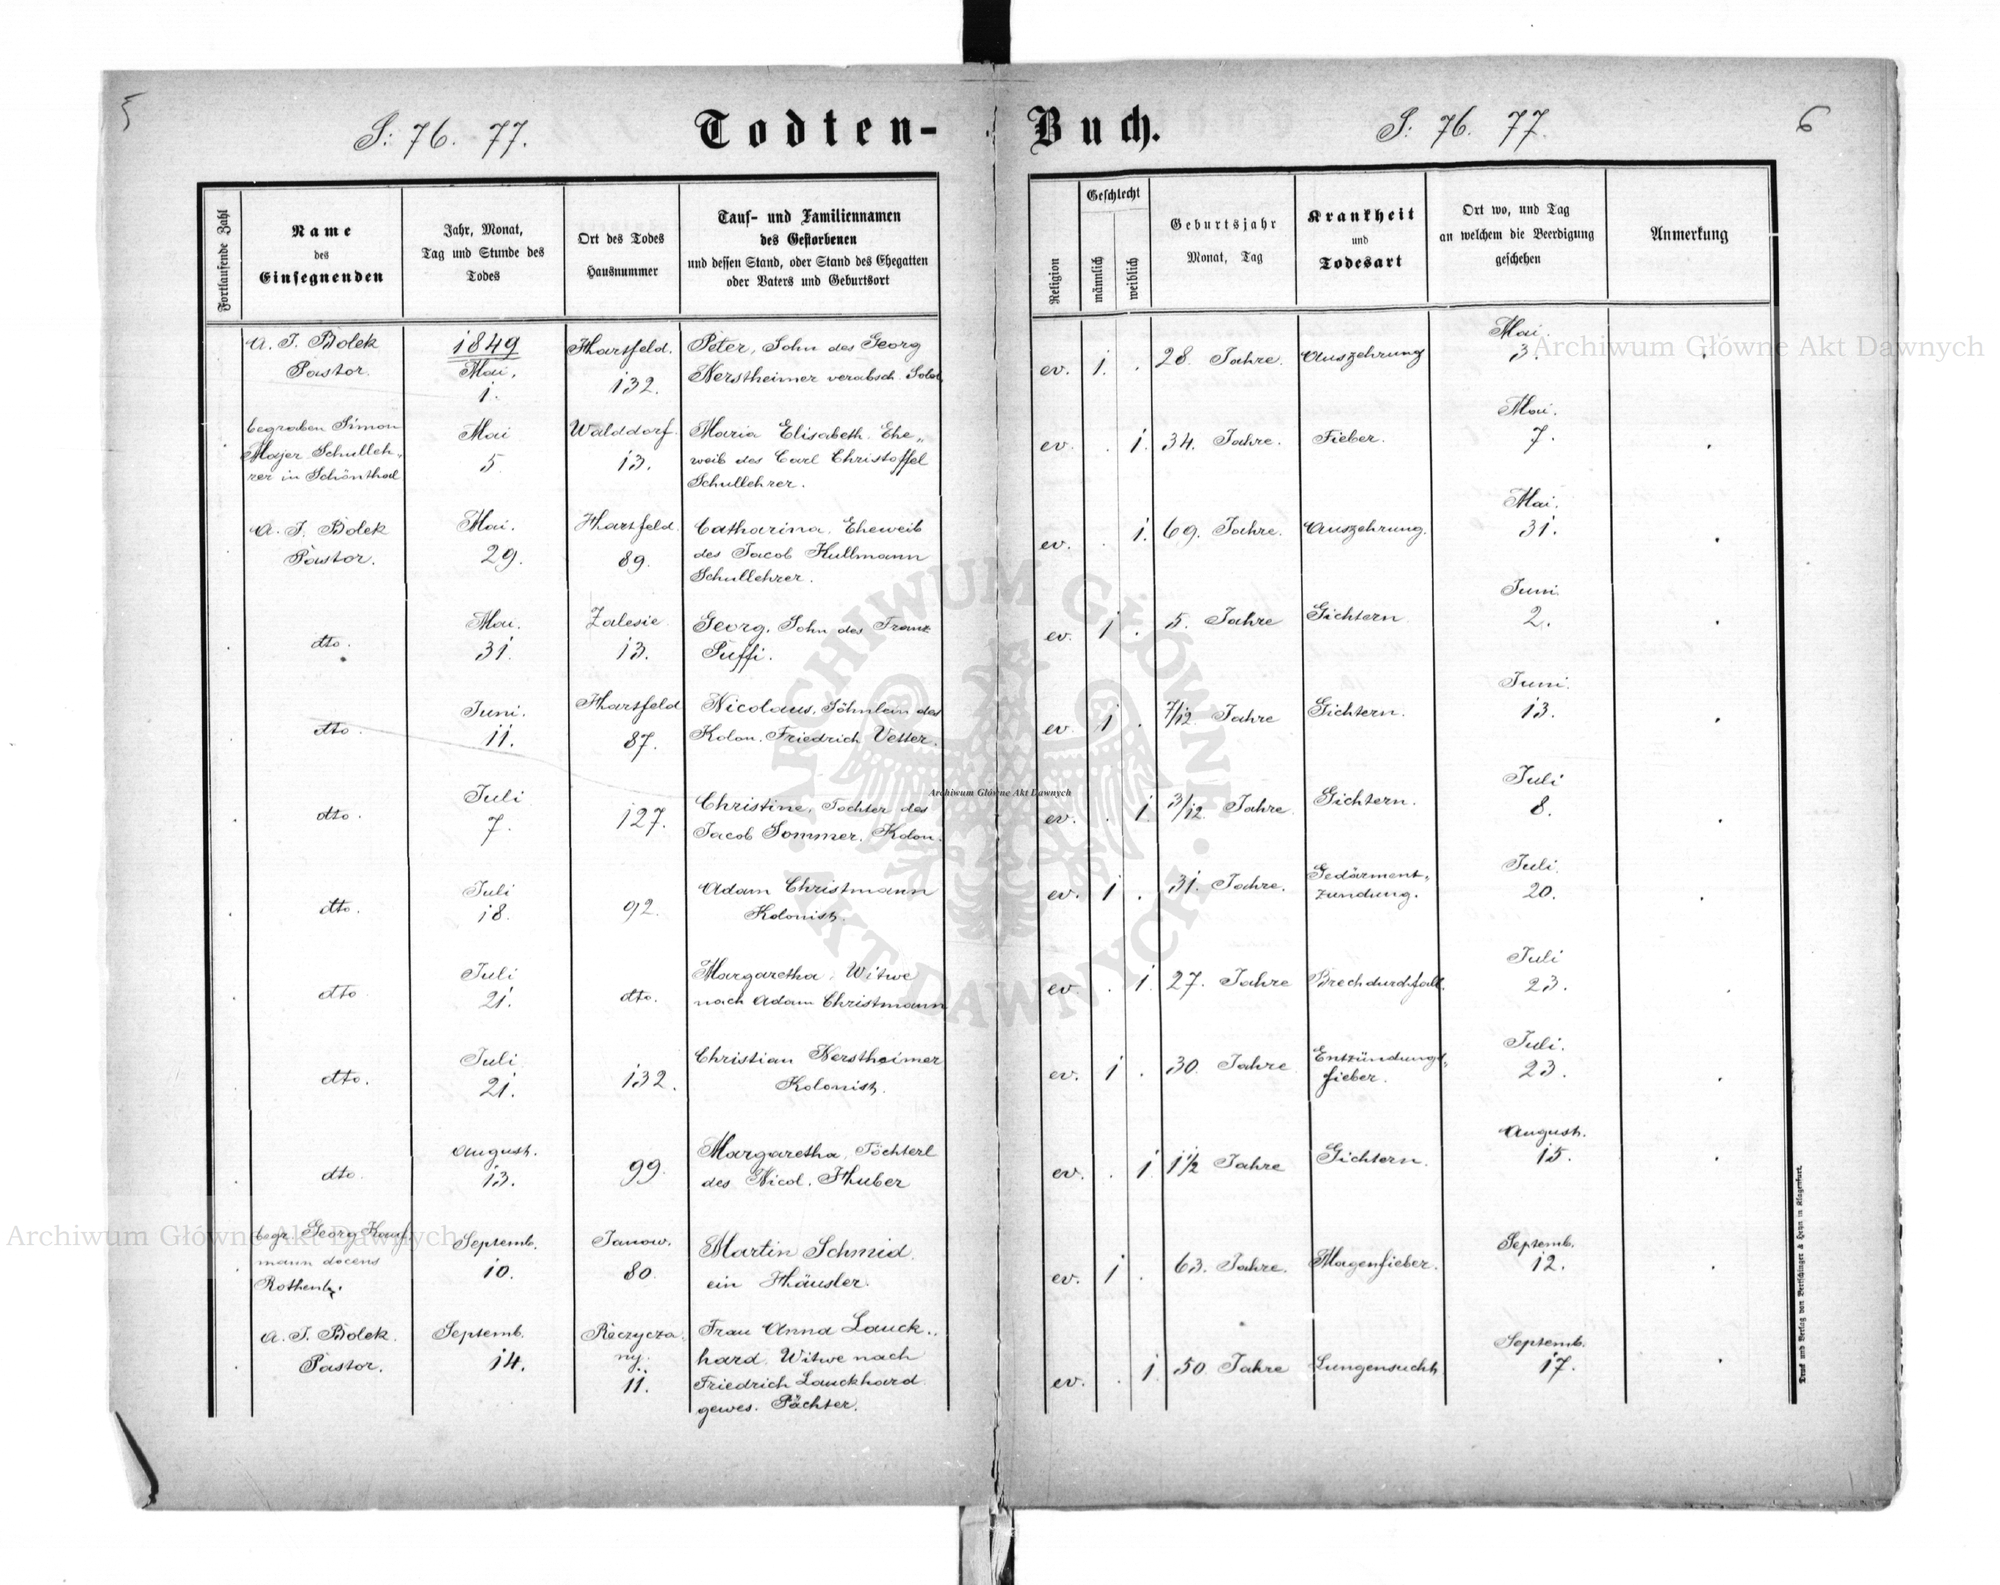 5
S: 76. 77.
Todten-
Buch.
S: 76. 77.
6
Fortlaufende Zahl
Name
des
Einsegnenden
Jahr, Monat,
Tag und Stunde des
Todes
Ort des Todes
Hausnummer
Tauf- und Familiennamen
des Gestorbenen
und dessen Stand, oder Stand des Ehegatten
oder Vaters und Geburtsort
Religion
Geschlecht
männlich
weiblich
Geburtsjahr
Monat, Tag
Krankheit
und
Todesart
Ort wo, und Tag
an welchem die Beerdigung
geschehen
Anmerkung
A. J. Bolek
Pastor.
1849
Mai.
1.
Hartfeld.
132.
Peter, Sohn des Georg
Kerstheimer verabsch. Sold.
ev. 1. . 28 Jahre. Auszehrung
Mai.
3.
begraben Simon
Majer Schulleh„
rer in Schönthal
Mai
5.
Walddorf.
13.
Maria Elisabeth. Ehe„
weib des Carl Christoffel
Schullehrer.
ev. . 1. 34. Jahre. Fieber.
Mai.
7.
A. J. Bolek
Pastor.
Mai.
29.
Hartfeld.
89.
Catharina, Eheweib
des Jacob Kullmann
Schullehrer.
ev. . 1. 69. Jahre. Auszehrung.
Mai.
31.
dto.
Mai.
31.
Zalesie
13.
Georg, Sohn des Franz
Puffi.
ev. 1 . 5. Jahre Gichtern.
Juni.
2.
dto.
Juni.
11.
Hartfeld
87.
Nicolaus, Söhnlein des
Kolon. Friedrich Vetter.
ev. 1 . 7/12. Jahre Gichtern.
Juni.
13.
dto.
Juli
7.
127.
Christine, Tochter des
Jacob Sommer, Kolon.
ev. . 1. 3/12. Jahre. Gichtern.
Juli
8.
dto.
Juli
18.
92.
Adam Christmann
Kolonist.
ev. 1 . 31. Jahre.
Gedärment„
zundung.
Juli.
20.
dto.
Juli
21.
dto.
Margaretha, Witwe
nach Adam Christmann
ev. . 1. 27. Jahre Brechdurchfall.
Juli
23.
dto.
Juli
21.
132.
Christian Kerstheimer
Kolonist.
ev. 1 . 30. Jahre
Entzündungs„
fieber.
Juli.
23.
dto.
August.
13.
99.
Margaretha, Töchterl
des Nicol. Huber
ev. . 1 1 1/2 Jahre Gichtern.
August.
15.
begr. Georg Kauf„
mann docens
Rothenb.
Septemb.
10.
Janow.
80.
Martin Schmid.
ein Häusler.
ev. 1 . 63. Jahre. Magenfieber.
Septemb.
12.
A. J. Bolek.
Pastor.
Septemb.
14.
Reczycza„
ny.
11.
Frau Anna Lauck„
hard. Witwe nach
Friedrich Lauckhard
gewes. Pächter.
ev. . 1 50. Jahre Lungensucht.
Septemb.
17.
Druck und Verlag von Bertschinger & Heyn in Klagenfurt.
Archiwum Główne Akt Dawnych
Archiwum Główne Akt Dawnych
Archiwum Główne Akt Dawnych
ARCHIWUM GŁÓWNE · AKT DAWNYCH ·